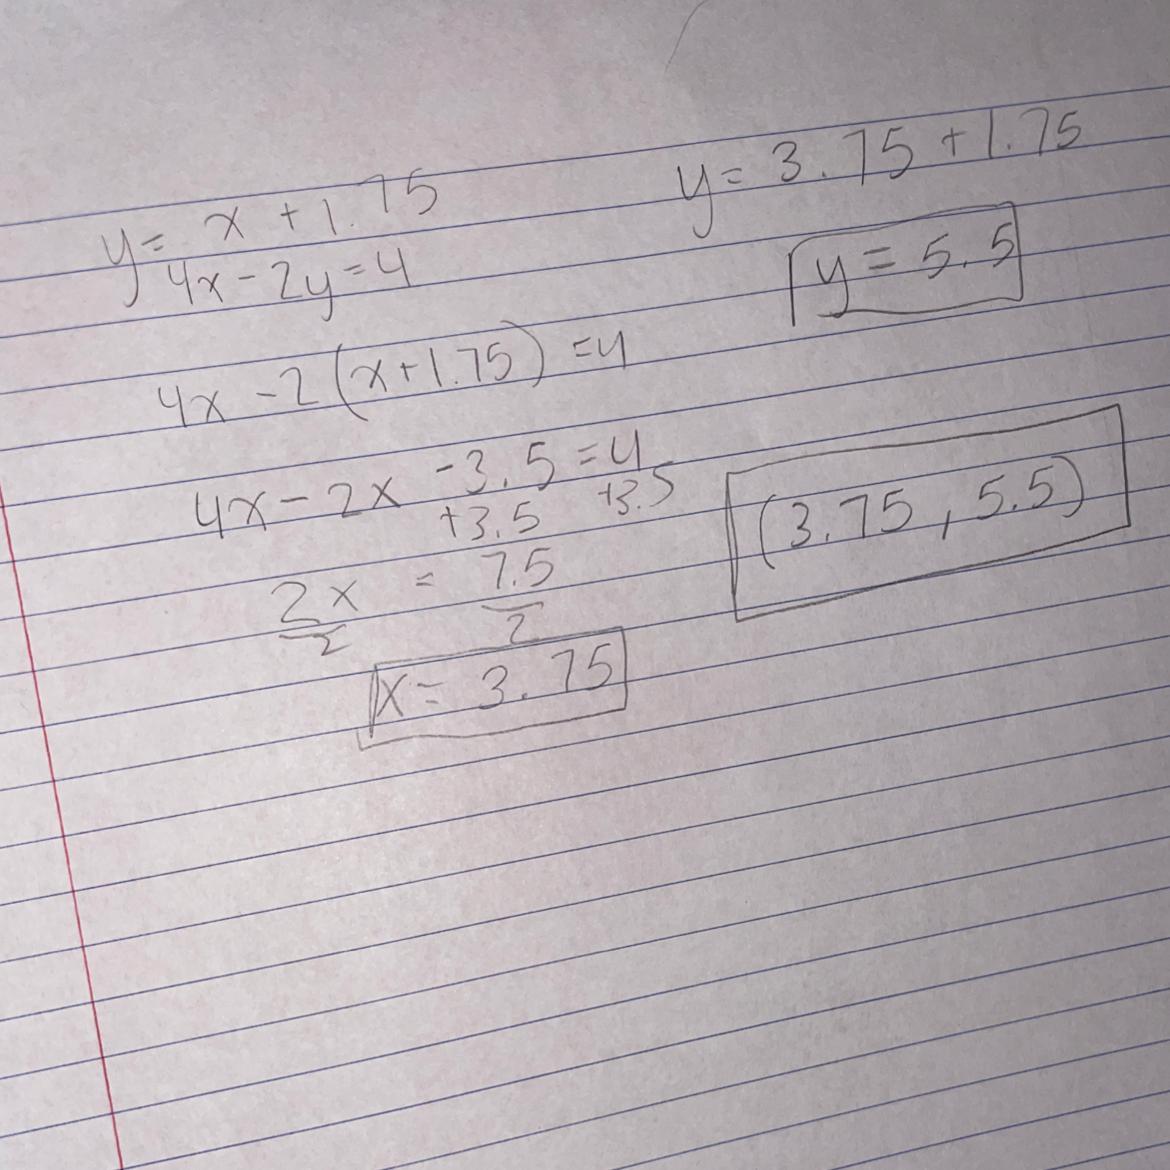 y = x + 1.75
4x - 2y = 4
4x - 2(x + 1.75) = 4
4x - 2x - 3.5 = 4
+3.5 +3.5
2x = 7.5
2 2
x = 3.75
y = 3.75 + 1.75
y = 5.5
(3.75, 5.5)